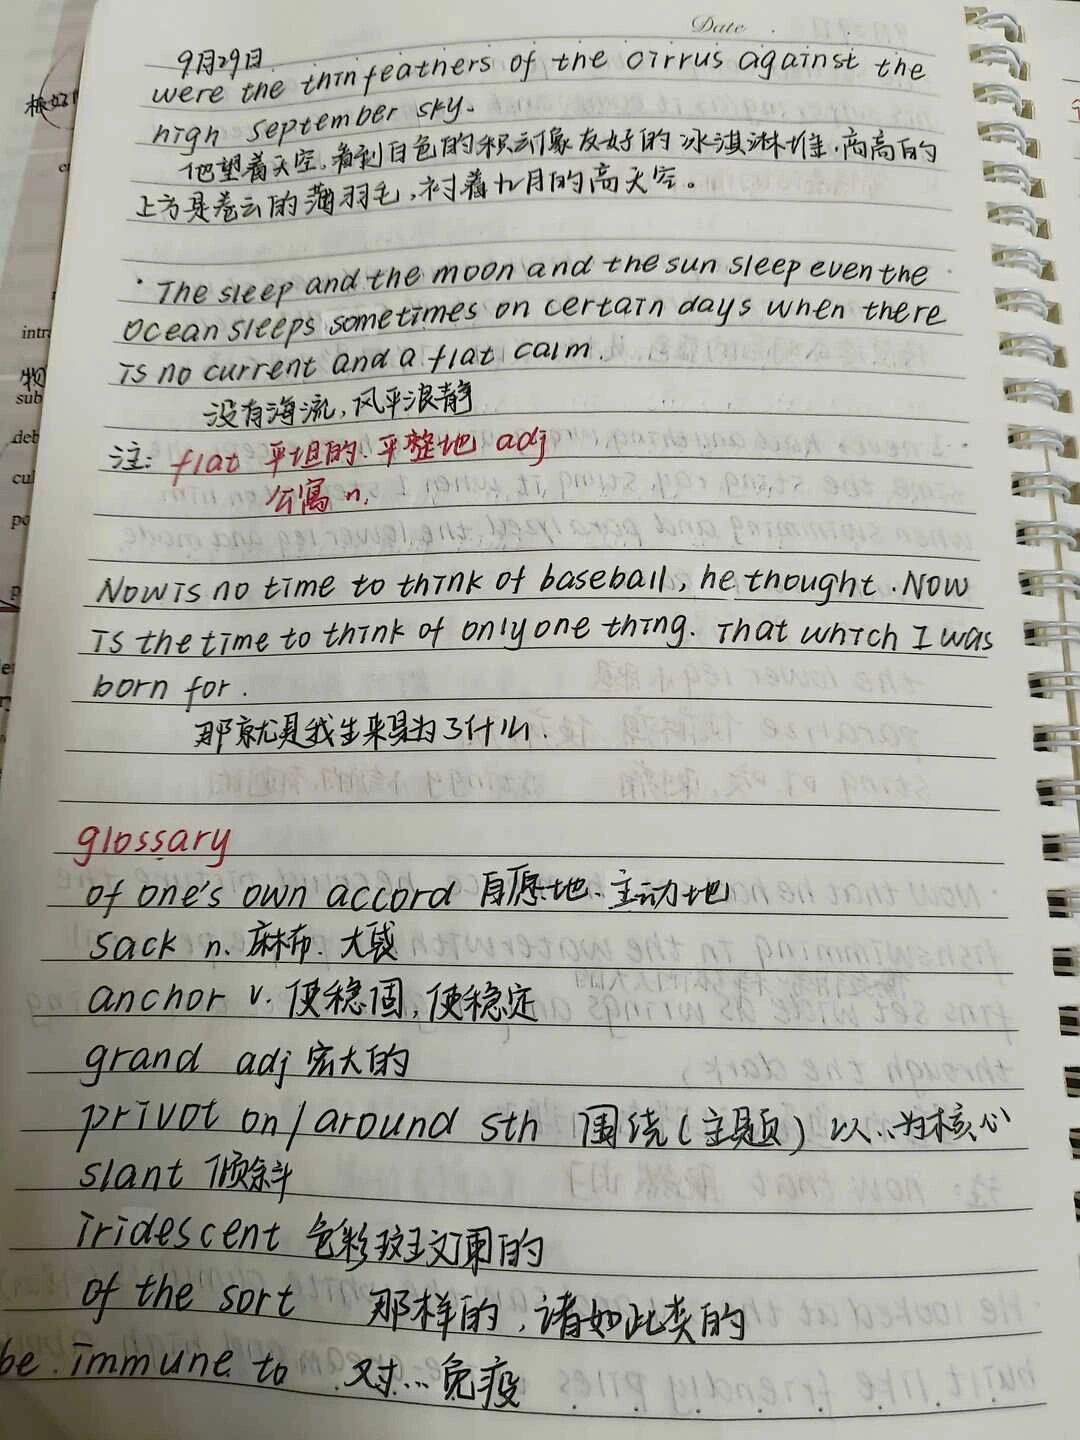 Date
9月29日
were the thin feathers of the cirrus against the
high September sky.
他望着天空,看到白色的积云像友好的冰淇淋堆,高高的
上方是卷云的薄羽毛,衬着九月的高天空。
· The sleep and the moon and the sun sleep even the
ocean sleeps sometimes on certain days when there
is no current and a flat calm.
没有海流,风平浪静
注: flat 平坦的.平整地 adj
公寓 n.
Now is no time to think of baseball, he thought. Now
is the time to think of only one thing. That which I was
born for.
那就是我生来是为了什么.
glossary
of one's own accord 自愿地.主动地
sack n. 麻布.大袋
anchor v. 使稳固,使稳定
grand adj 宏大的
privot on/around sth 围绕(主题)以..为核心
slant 倾斜
iridescent 色彩斑斓的
of the sort 那样的,诸如此类的
be immune to 对...免疫
intr
物
sub
deb
cul
po